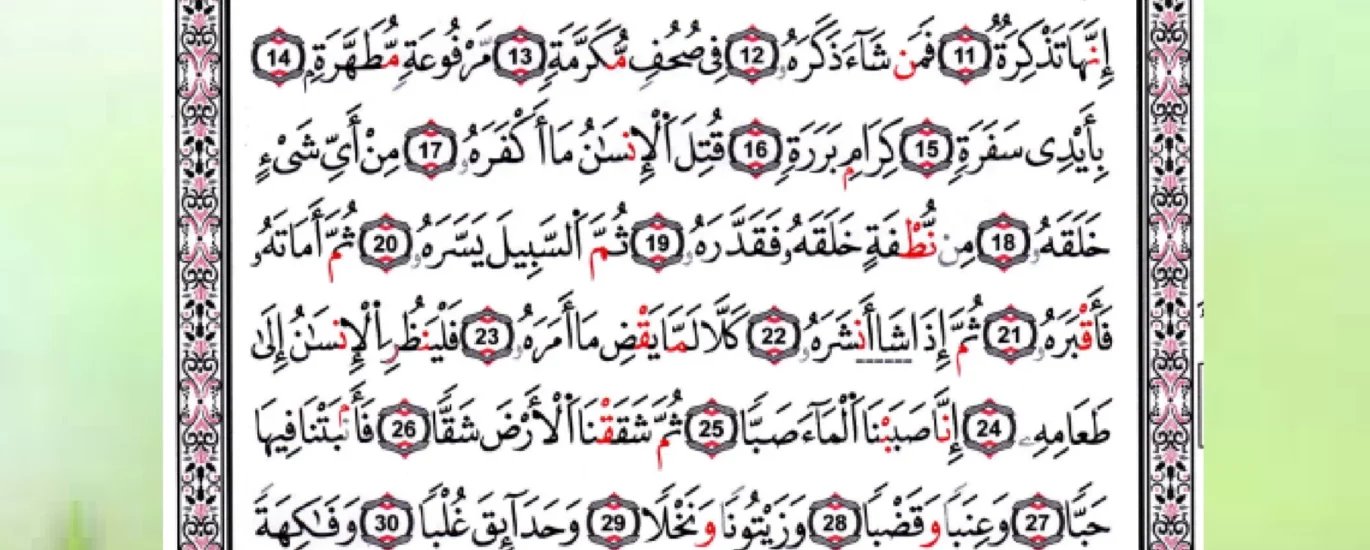 إِنَّهَا تَذْكِرَةٌ 11 فَمَن شَآءَ ذَكَرَهُۥ 12 فِى صُحُفٍ مُّكَرَّمَةٍ 13 مَّرْفُوعَةٍ مُّطَهَّرَةِۭ 14
بِأَيْدِى سَفَرَةٍ 15 كِرَامِۭ بَرَرَةٍ 16 قُتِلَ ٱلْإِنسَٰنُ مَا أَكْفَرَهُۥ 17 مِنْ أَىِّ شَىْءٍ
خَلَقَهُۥ 18 مِن نُّطْفَةٍ خَلَقَهُۥ فَقَدَّرَهُۥ 19 ثُمَّ ٱلسَّبِيلَ يَسَّرَهُۥ 20 ثُمَّ أَمَاتَهُۥ
فَأَقْبَرَهُۥ 21 ثُمَّ إِذَا شَا أَنشَرَهُۥ 22 كَلَّا لَمَّا يَقْضِ مَا أَمَرَهُۥ 23 فَلْيَنظُرِ ٱلْإِنسَٰنُ إِلَىٰ
طَعَامِهِۦ 24 إِنَّا صَبَبْنَا ٱلْمَآءَ صَبًّا 25 ثُمَّ شَقَقْنَا ٱلْأَرْضَ شَقًّا 26 فَأَنۢبَتْنَا فِيهَا
حَبًّا 27 وَعِنَبًا وَقَضْبًا 28 وَزَيْتُونًا وَنَخْلًا 29 وَحَدَآئِقَ غُلْبًا 30 وَفَٰكِهَةً